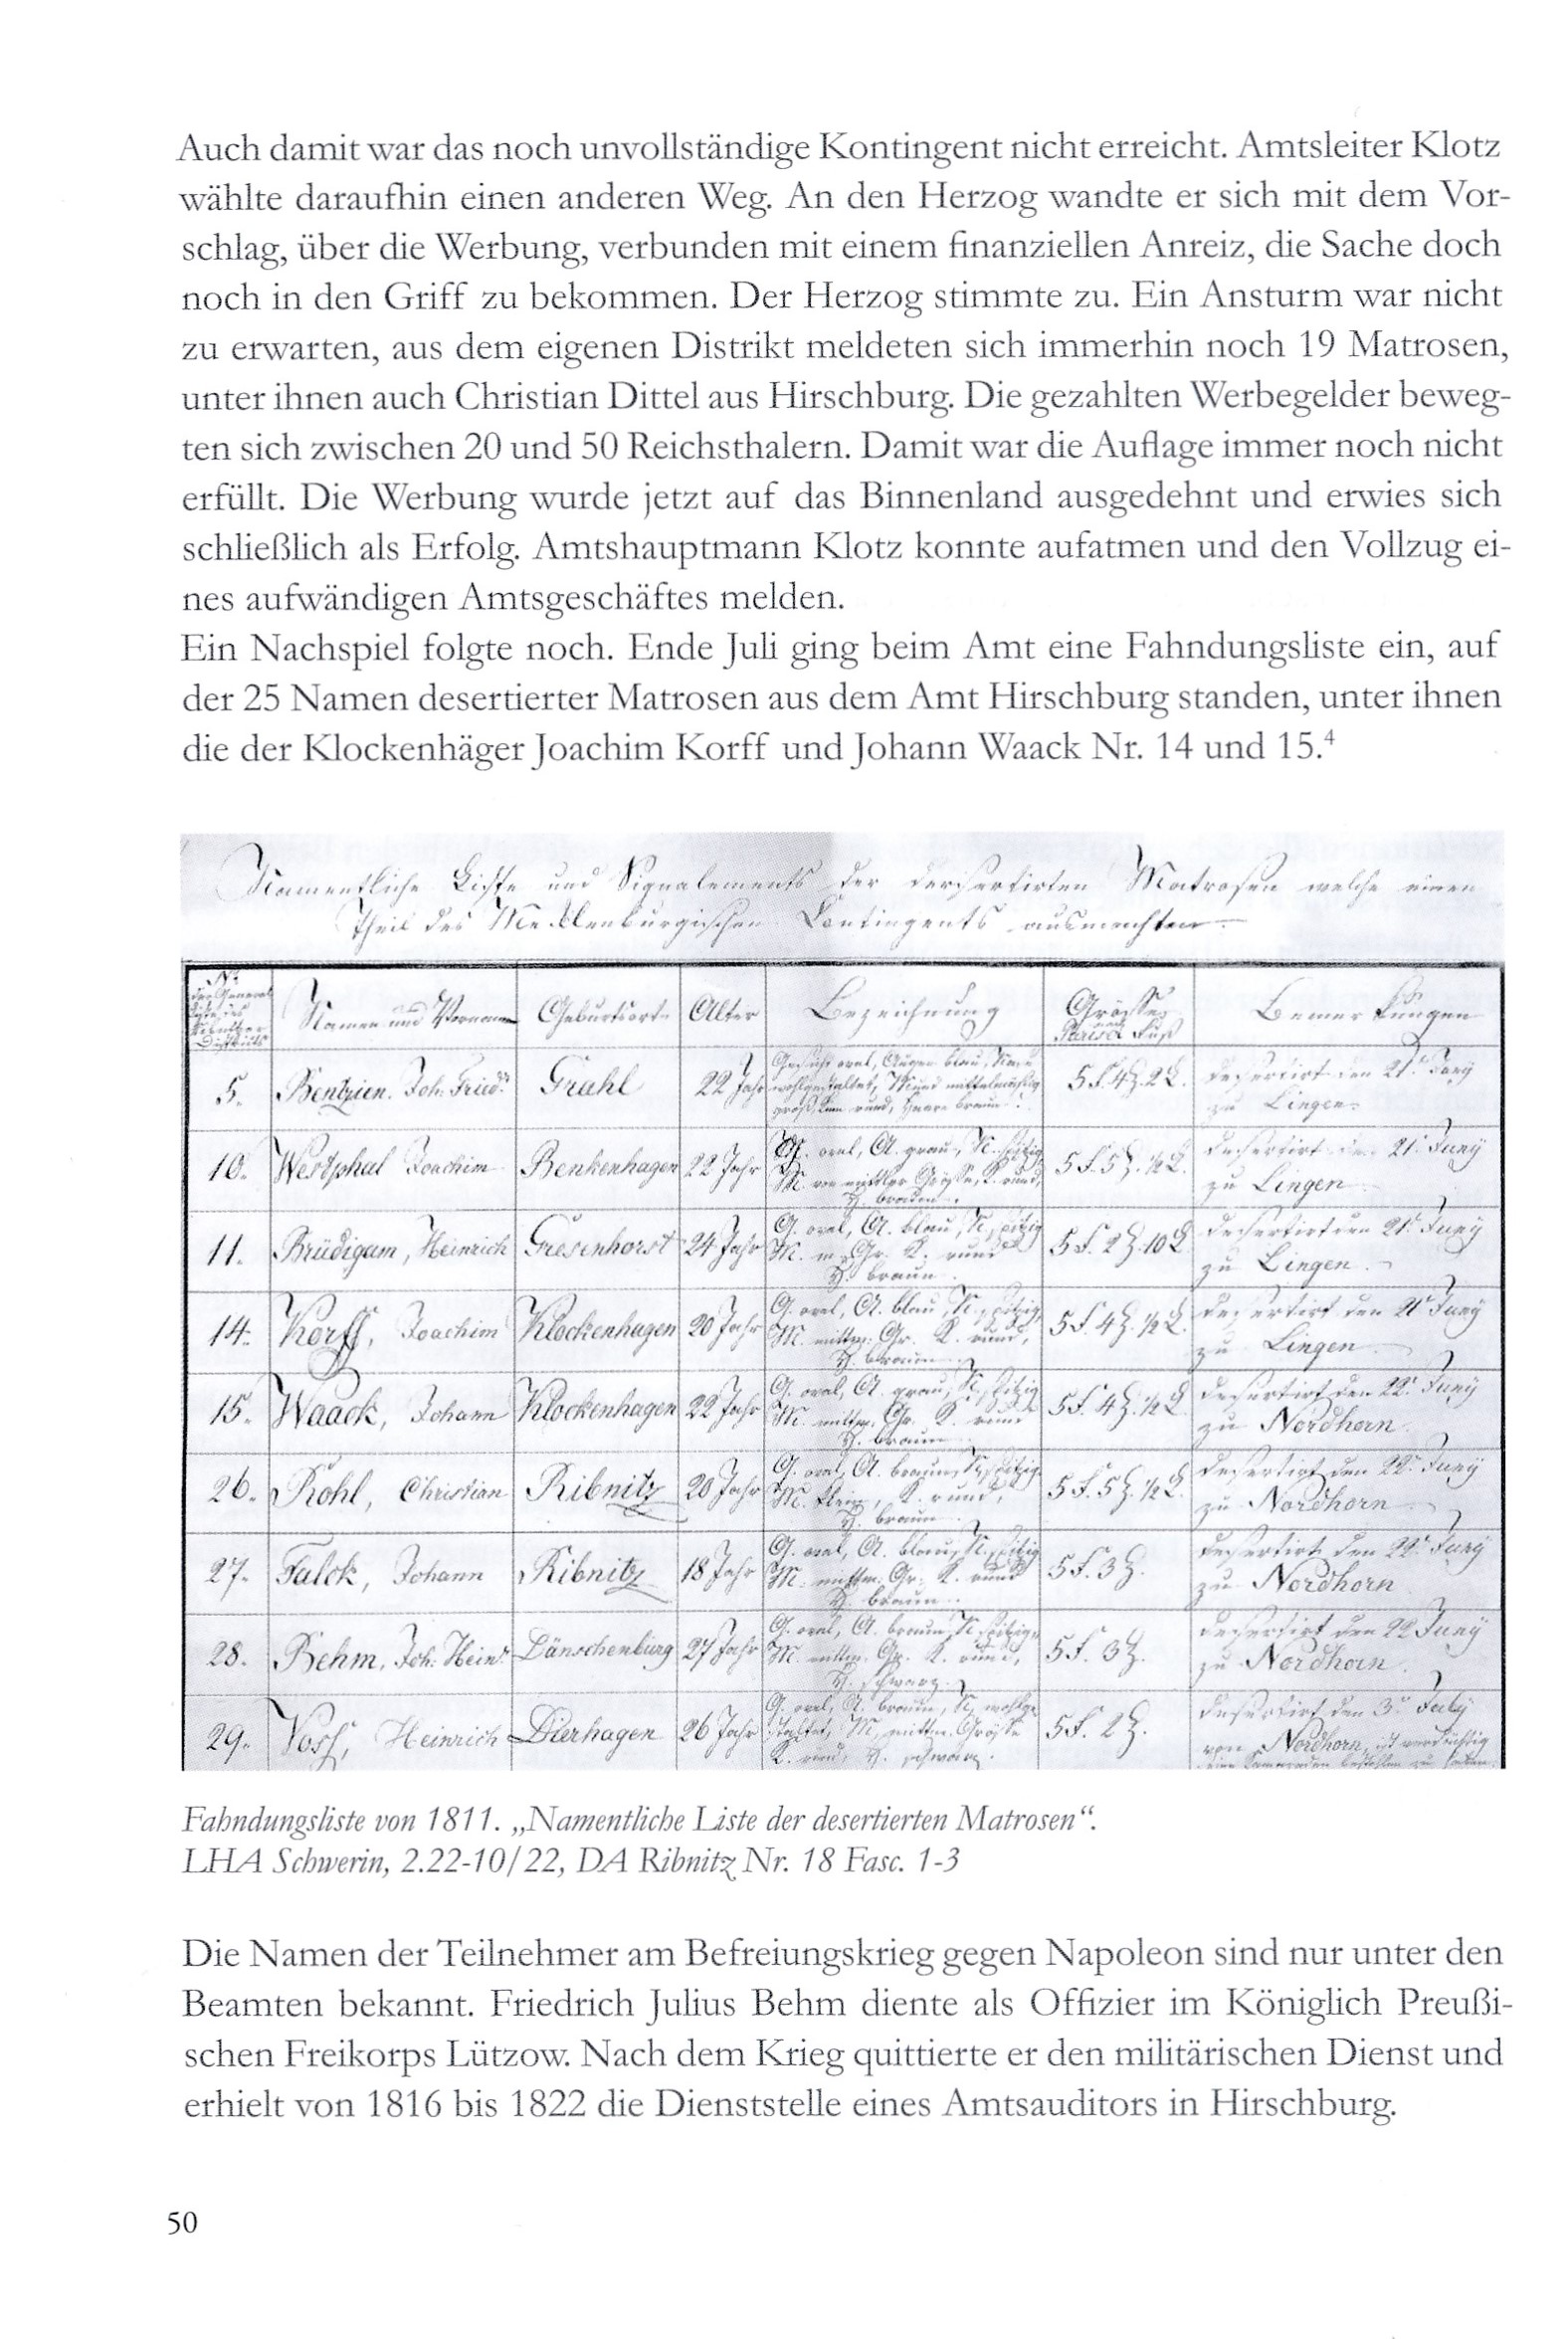 Auch damit war das noch unvollständige Kontingent nicht erreicht. Amtsleiter Klotz
wählte daraufhin einen anderen Weg. An den Herzog wandte er sich mit dem Vor-
schlag, über die Werbung, verbunden mit einem finanziellen Anreiz, die Sache doch
noch in den Griff zu bekommen. Der Herzog stimmte zu. Ein Ansturm war nicht
zu erwarten, aus dem eigenen Distrikt meldeten sich immerhin noch 19 Matrosen,
unter ihnen auch Christian Dittel aus Hirschburg. Die gezahlten Werbegelder beweg-
ten sich zwischen 20 und 50 Reichsthalern. Damit war die Auflage immer noch nicht
erfüllt. Die Werbung wurde jetzt auf das Binnenland ausgedehnt und erwies sich
schließlich als Erfolg. Amtshauptmann Klotz konnte aufatmen und den Vollzug ei-
nes aufwändigen Amtsgeschäftes melden.
Ein Nachspiel folgte noch. Ende Juli ging beim Amt eine Fahndungsliste ein, auf
der 25 Namen desertierter Matrosen aus dem Amt Hirschburg standen, unter ihnen
die der Klockenhäger Joachim Korff und Johann Waack Nr. 14 und 15.⁴
Namentliche Liste und Signalements der desertirten Matrosen welche einen
Theil des Mecklenburgischen Contingents ausmachten
Namen und Vornamen Geburtsort Alter Bezeichnung Grösse Bemerkungen
5. Bentzien, Joh. Fried. Grahl 22 Jahr Gesicht oval, Augen blau, Nase 5 F. 4 Z. 2 L. desertirt den 21. Juny
wohlgestaltet, Mund mittelmäßig zu Lingen.
10. Westphal Joachim Benkenhagen 22 Jahr G. oval, A. grau, N. spitzig 5 F. 5 Z. ½ L. desertirt den 21. Juny
M. von mittler Grösse, K. rund, zu Lingen
H. braun.
11. Brüdigam, Heinrich Gresenhorst 24 Jahr G. oval, A. blau, N. spitzig 5 F. 2 Z. 10 L. desertirt den 21. Juny
M. m. Gr. K. rund zu Lingen.
H. braun
14. Korff, Joachim Klockenhagen 20 Jahr G. oval, A. blau, N. spitzig, 5 F. 4 Z. ½ L. desertirt den 21. Juny
M. mittm. Gr. K. rund, zu Lingen
H. braun
15. Waack, Johann Klockenhagen 22 Jahr G. oval, A. grau, N. spitzig 5 F. 4 Z. ½ L. desertirt den 22. Juny
M. mittm. Gr. K. rund zu Nordhorn
H. braun
26. Kohl, Christian Ribnitz 20 Jahr G. oval, A. braun, N. spitzig 5 F. 5 Z. ½ L. desertirt den 22. Juny
M. klein, K. rund, zu Nordhorn
H. braun
27. Falck, Johann Ribnitz 18 Jahr G. oval, A. blau, N. spitzig 5 F. 3 Z. desertirt den 22. Juny
M. mittm. Gr. K. rund zu Nordhorn
H. braun.
28. Behm, Joh. Hein. Dänschenburg 27 Jahr G. oval, A. braun, N. spitzig, 5 F. 3 Z. desertirt den 22 Juny
M. mittm. Gr. K. rund, zu Nordhorn.
H. schwarz.
29. Voss, Heinrich Dierhagen 26 Jahr G. oval, A. braun, N. wohlge 5 F. 2 Z. desertirt den 3. July
staltet, M. mittm. Größe von Nordhorn, ist verdächtig
K. rund, H. schwarz.
Fahndungsliste von 1811. „Namentliche Liste der desertierten Matrosen“.
LHA Schwerin, 2.22-10/22, DA Ribnitz Nr. 18 Fasc. 1-3
Die Namen der Teilnehmer am Befreiungskrieg gegen Napoleon sind nur unter den
Beamten bekannt. Friedrich Julius Behm diente als Offizier im Königlich Preußi-
schen Freikorps Lützow. Nach dem Krieg quittierte er den militärischen Dienst und
erhielt von 1816 bis 1822 die Dienststelle eines Amtsauditors in Hirschburg.
50